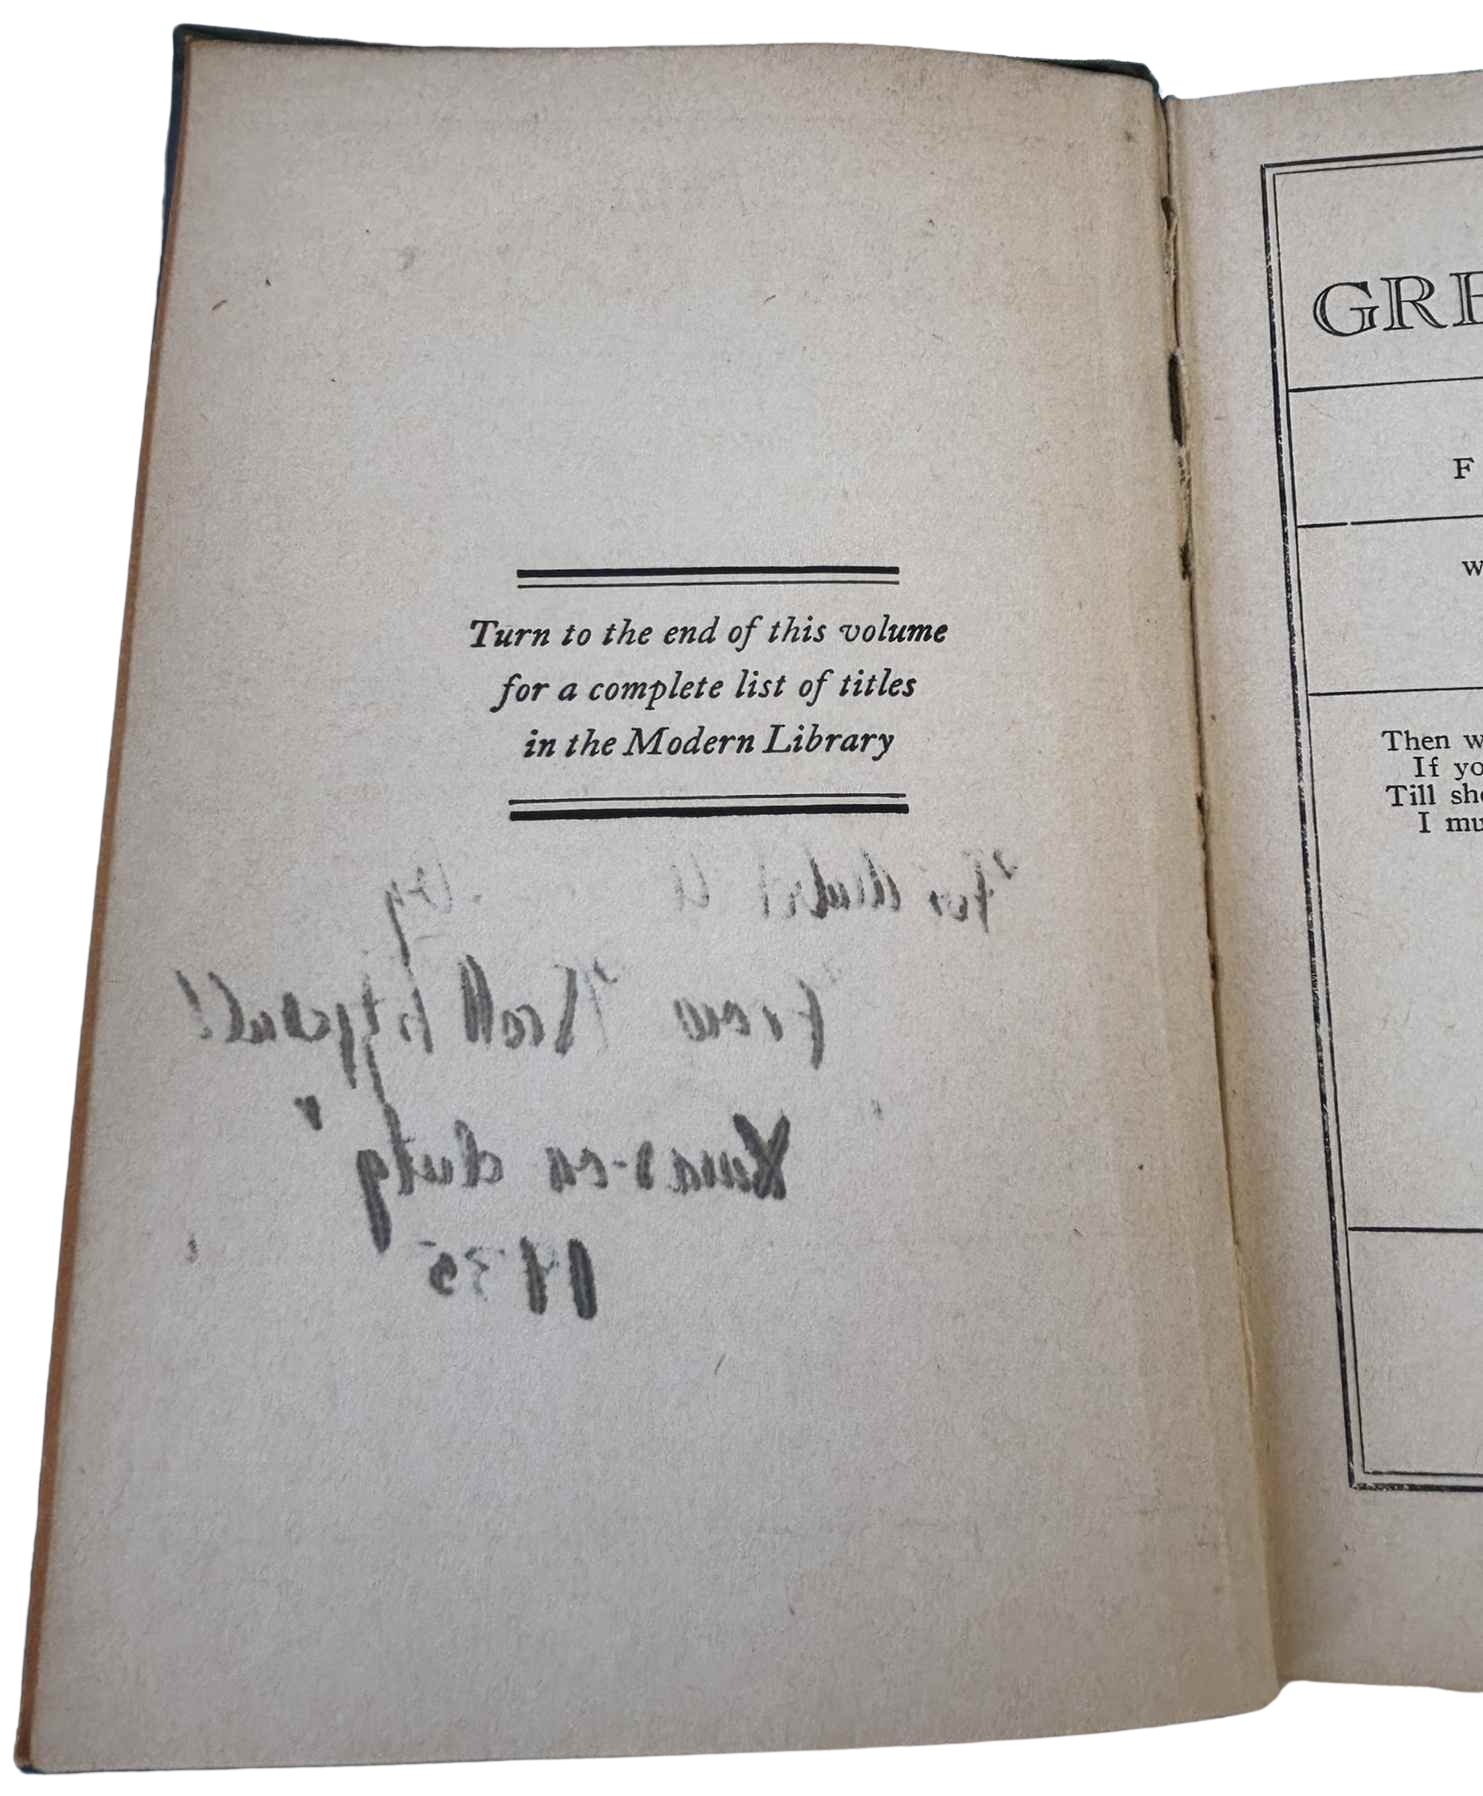 Turn to the end of this volume
for a complete list of titles
in the Modern Library
"For
"From "Scott Fitzgerald!
Xmas-on duty"
1935
GRE
F
W
Then w
If yo
Till sh
I mu